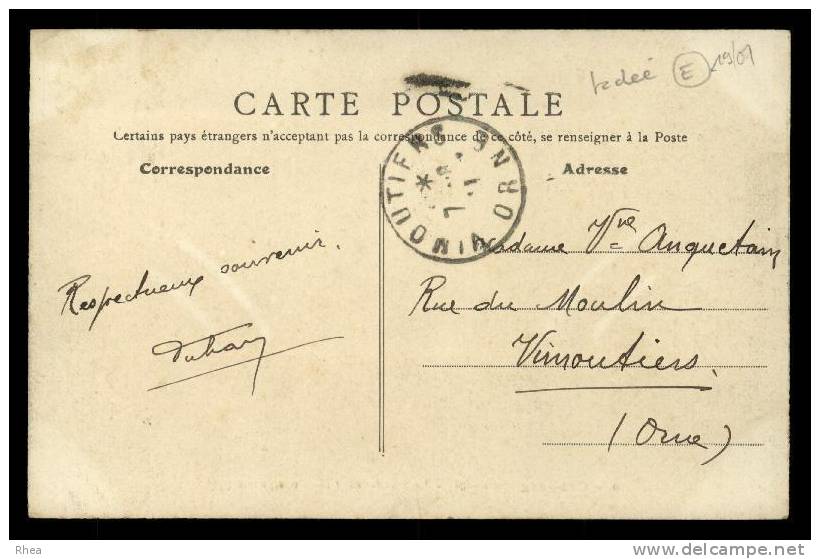 E 19/01
CARTE POSTALE
Certains pays étrangers n'acceptant pas la correspondance de ce côté, se renseigner à la Poste
Correspondance
Adresse
VIMOUTIERS ORNE
Madame Vve Anquetain
Rue du Moulin
Vimoutiers.
(Orne)
Respectueux souvenir.
Rhea
www.delcampe.net